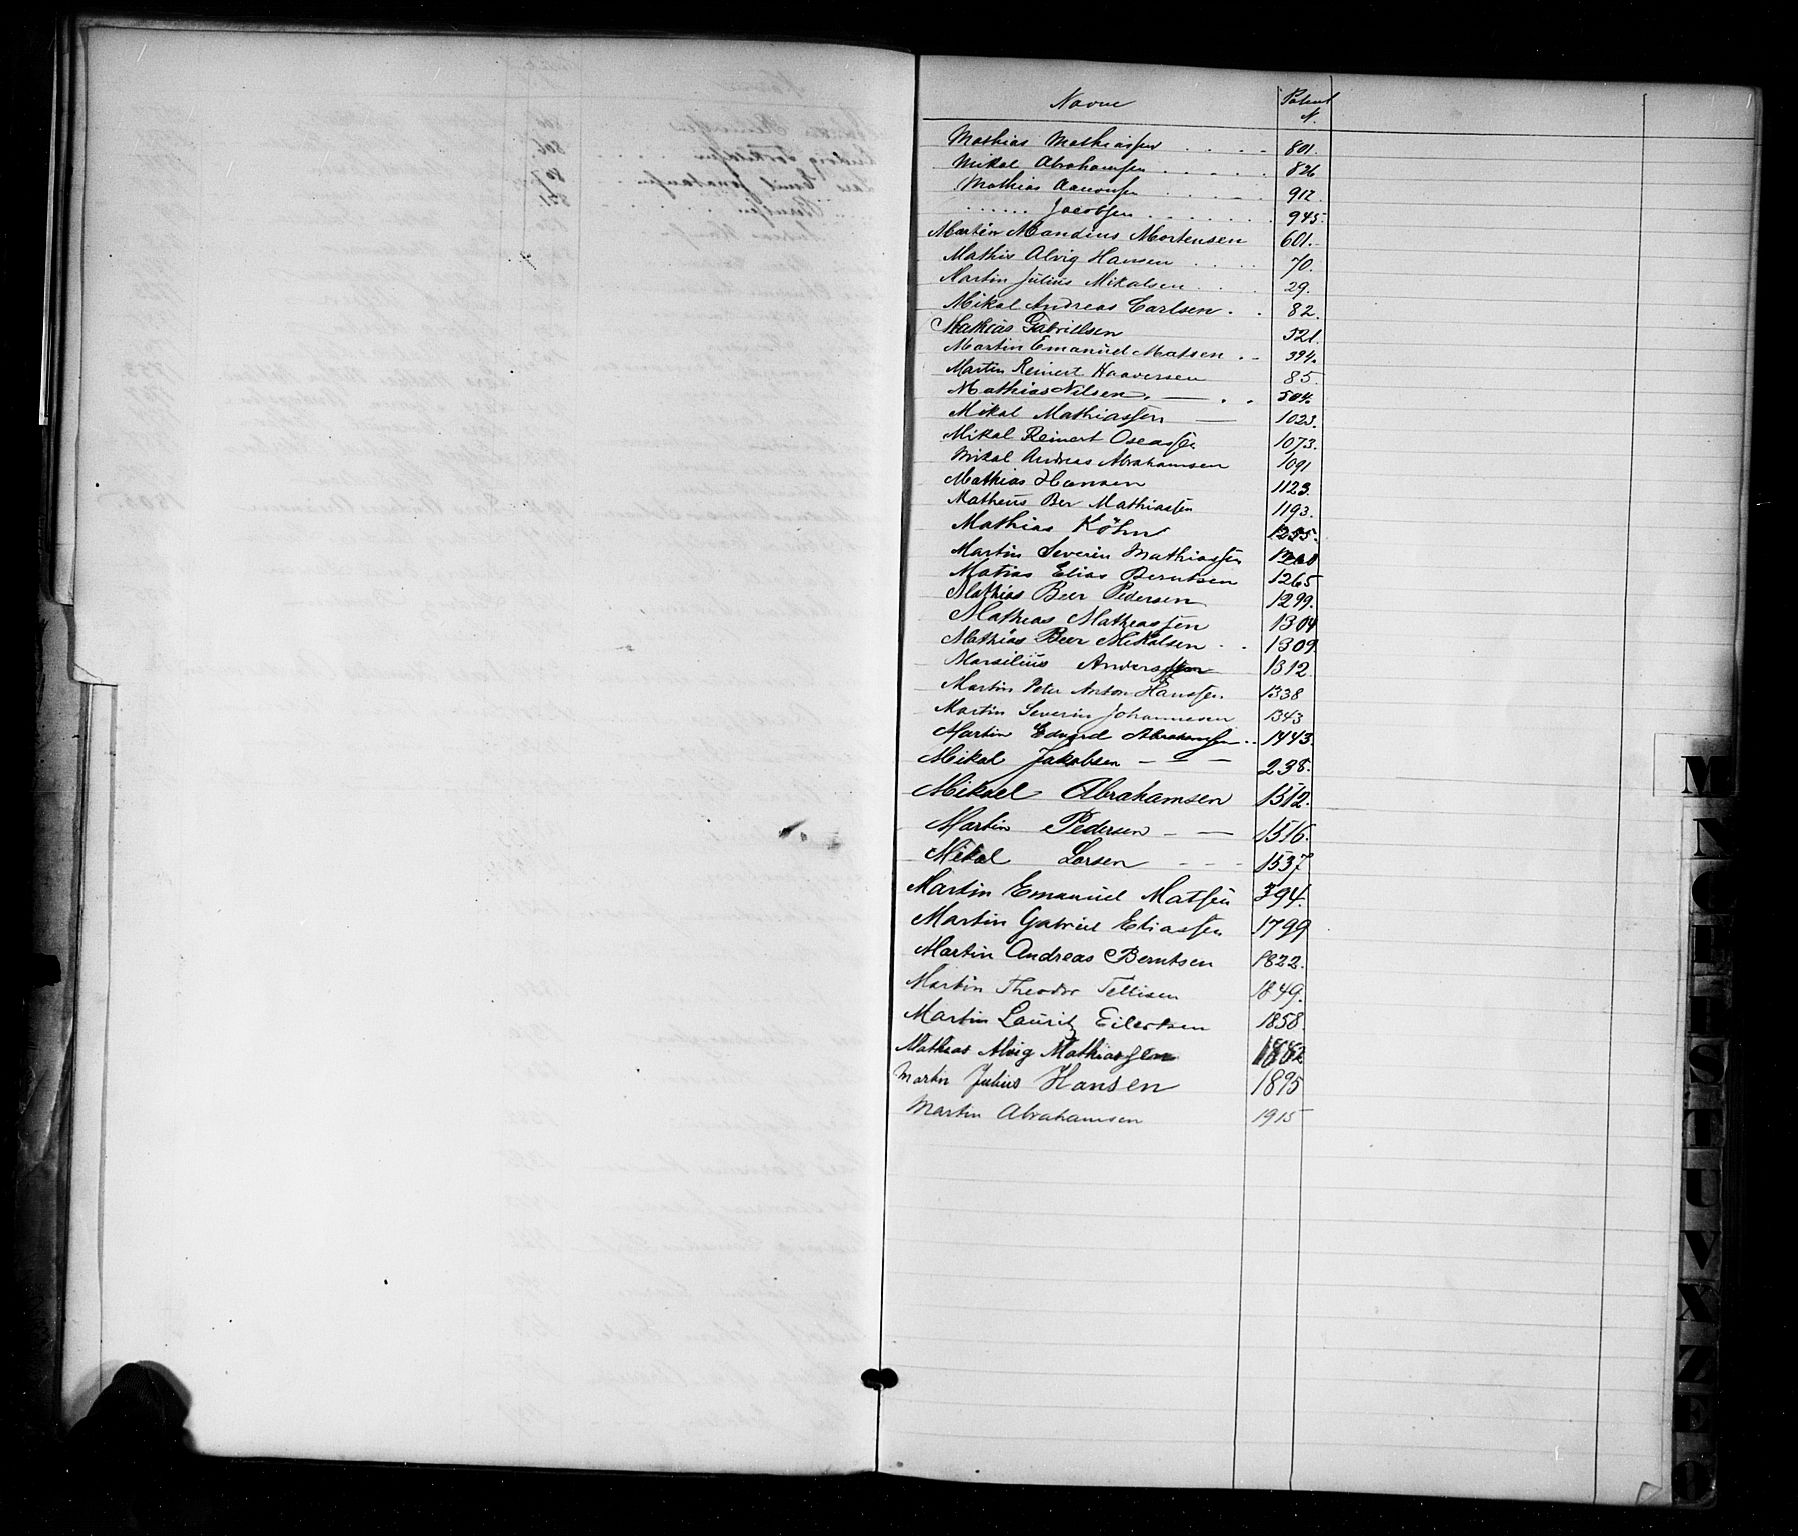 Navne Patent N.
Mathias Mathiassen . . . . 801.
Mikal Abrahamsen . . . . . 826
Mathias Aanonsen . . . . 912
. . . . . . Jacobsen . . . . . . . 945.
Martin Mandius Mortensen 601.
Mathis Alvig Hansen . . . . 70.
Martin Julius Mikalsen . . . 29.
Mikal Andreas Carlsen . . 82.
Mathias Gabrielsen 521.
Martin Emanuel Matsen . . 394.
Martin Reinert Haaversen 85.
Mathias Nilsen . — . . 504.
Mikal Mathiassen — 1023.
Mikal Reinert Oseassen 1073.
Mikal Andreas Abrahamsen 1091
Mathias Hansen 1123.
Matheus Ber Mathiassen 1193.
Mathias Köhn 1255.
Martin Severin Mathiassen
Matias Elias Berntsen 1265
Mathias Beer Pedersen 1299.
Mathias Mathiassen 1304
Mathias Beer Mikalsen . . 1309
Marsilius Anderssen 1312
Martin Peter Anton Hanssen 1338
Martin Severin Johannesen 1343
Martin Edvard Abrahamsen . . 1443.
Mikal Jakobsen — — — 238.
Mikael Abrahamsen 1512.
Martin Pedersen — — 1516.
Mikal Larsen - - - 1537
Martin Emanuel Matsen 394.
Martin Gabriel Eliassen 1799
Martin Andreas Berntsen 1822.
Martin Theodor Tellisen 1849.
Martin Lauritz Eilertsen 1858.
Mathias Alvig Mathiassen 1882
Martin Julius Hansen 1895
Martin Abrahamsen 1915
M
N
S
T
U
V
X
Z